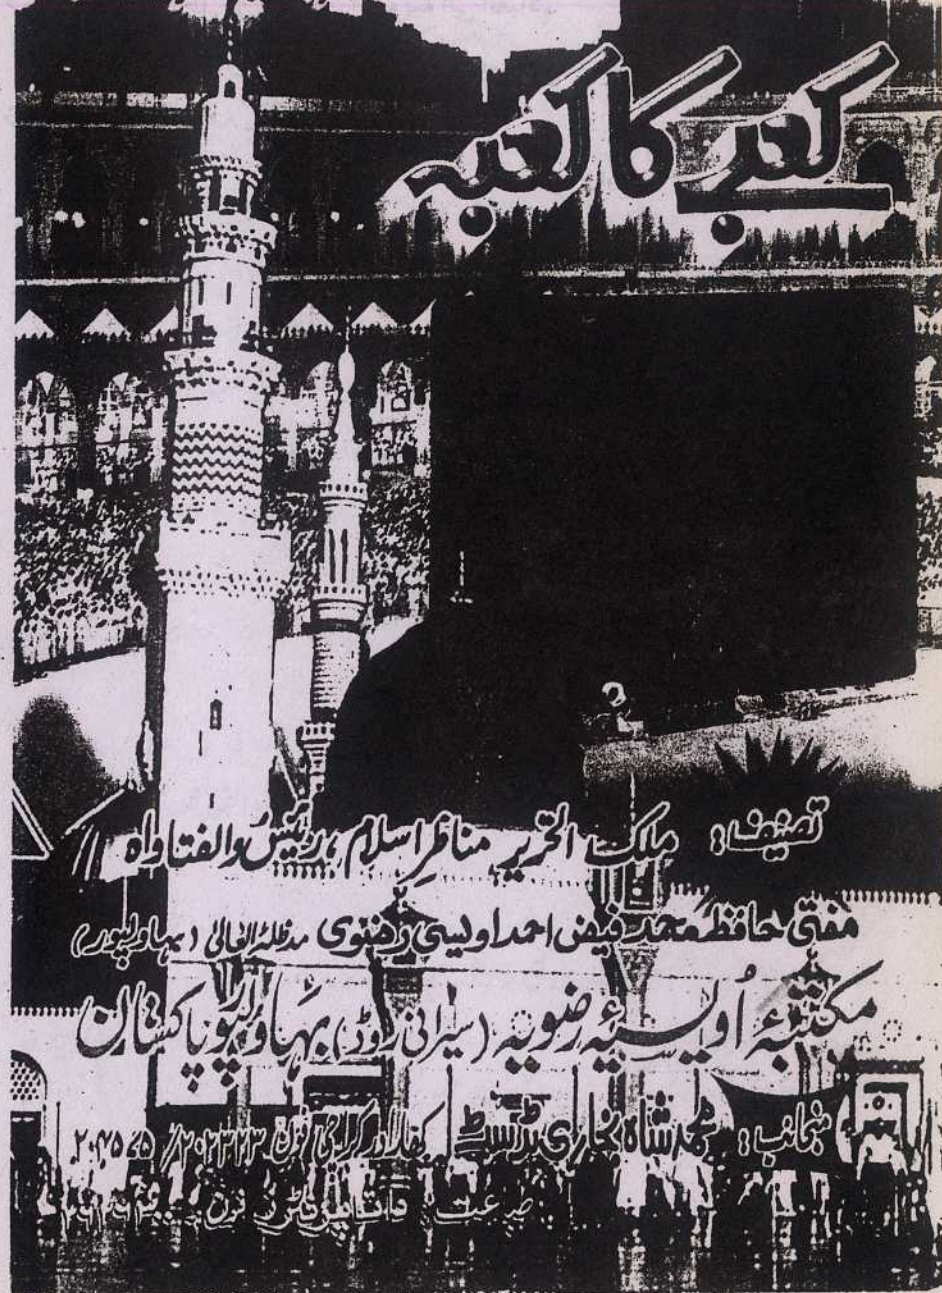 کعبے کا کعبہ
تصنیف: ملک التحریر مناظرِ اسلام، رئیس والفتاواہ
مفتی حافظ محمد فیض احمد اویسی رضوی مدظلہٗ العالیٰ (بہاولپور)
مکتبۂ اُویسیۂ رضویہ (سیرانی روڈ) بہاولپور پاکستان
منجانب: محمد شاہ بخاری ٹرسٹ کھارادر کراچی فون
فون